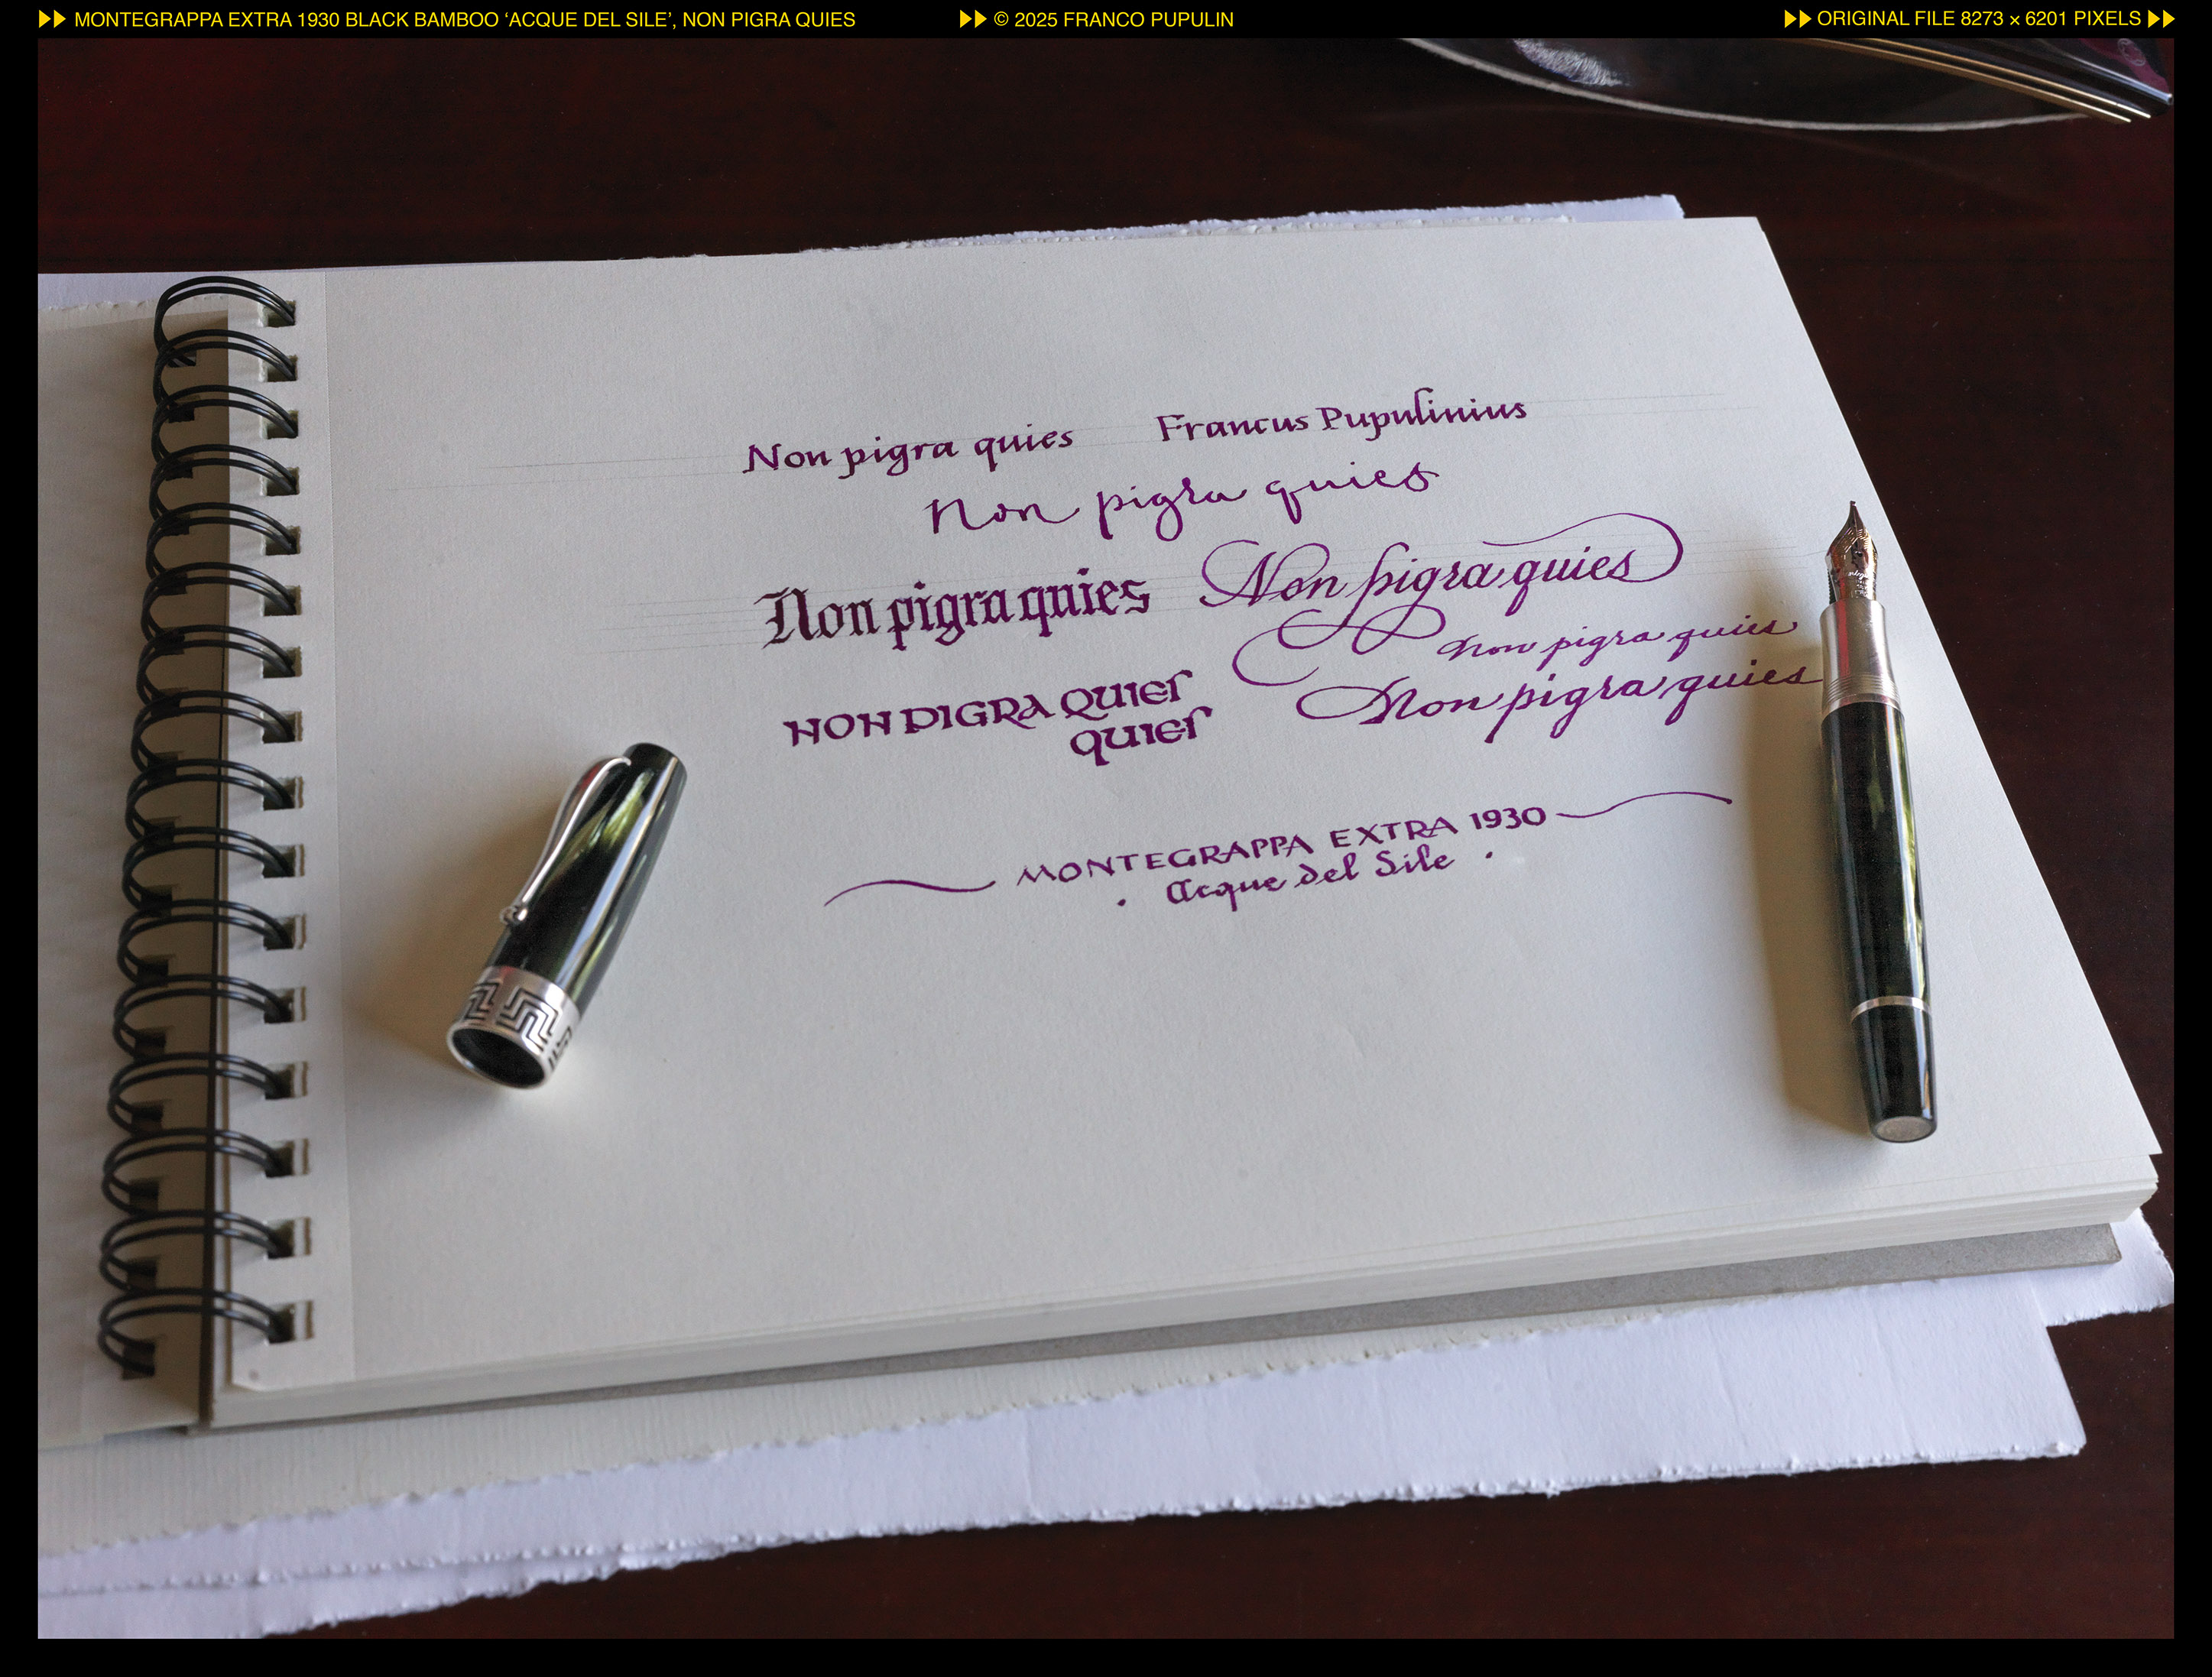 MONTEGRAPPA EXTRA 1930 BLACK BAMBOO ‘ACQUE DEL SILE’, NON PIGRA QUIES © 2025 FRANCO PUPULIN ORIGINAL FILE 8273 × 6201 PIXELS
Non pigra quies Francus Pupulinius
Non pigra quies
Non pigra quies Non pigra quies
Non pigra quies
NON PIGRA QUIES Non pigra quies
QUIES
MONTEGRAPPA EXTRA 1930
· Acque del Sile ·